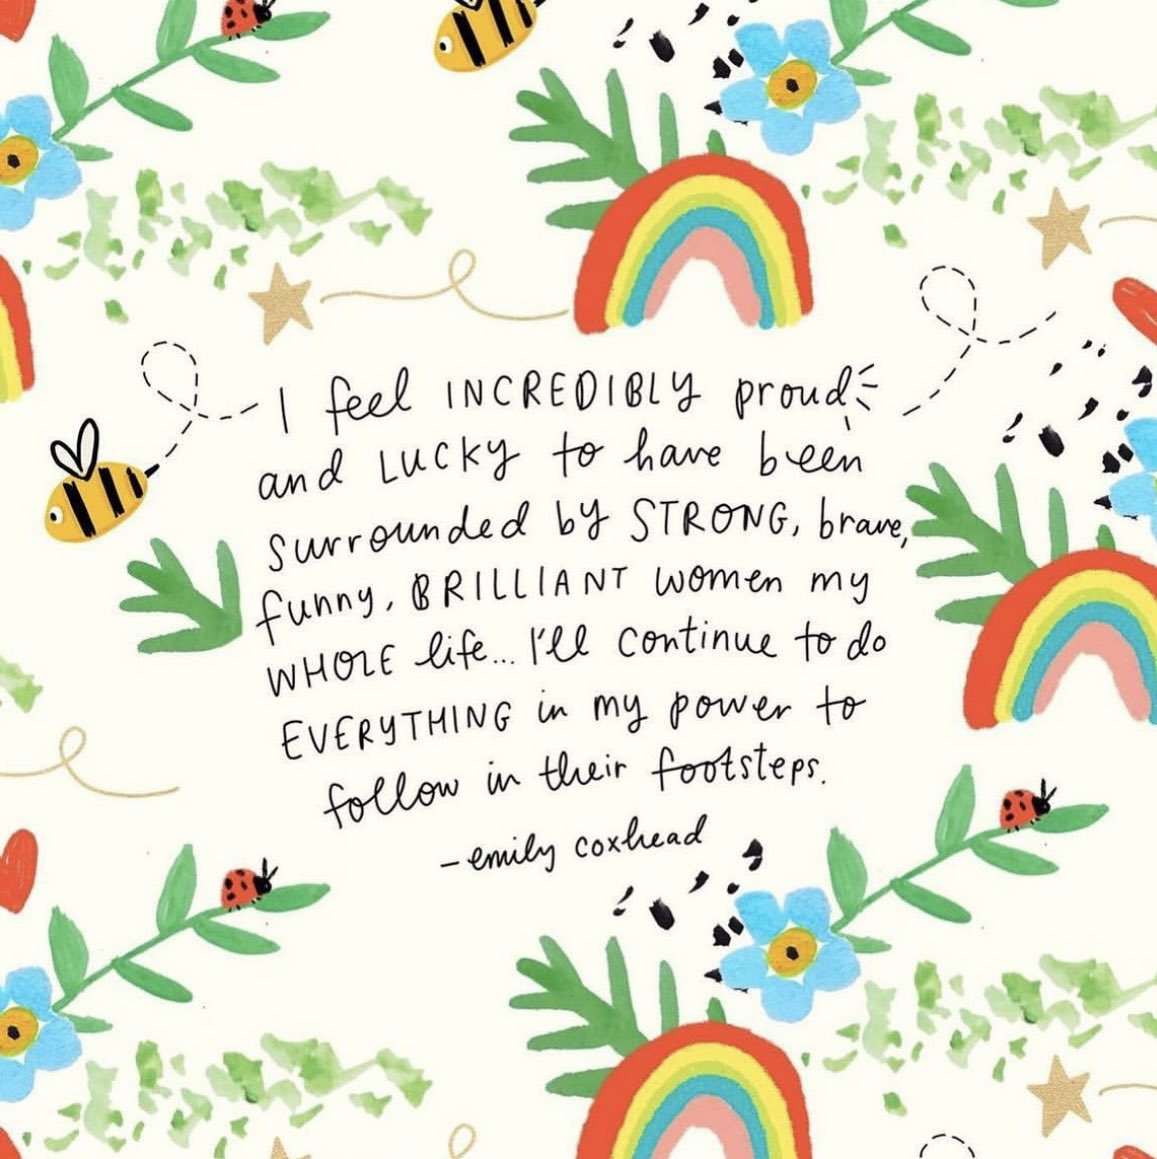 I feel INCREDIBLY proud
and LUCKY to have been
surrounded by STRONG, brave,
funny, BRILLIANT women my
WHOLE life... I'll continue to do
EVERYTHING in my power to
follow in their footsteps.
- emily coxhead